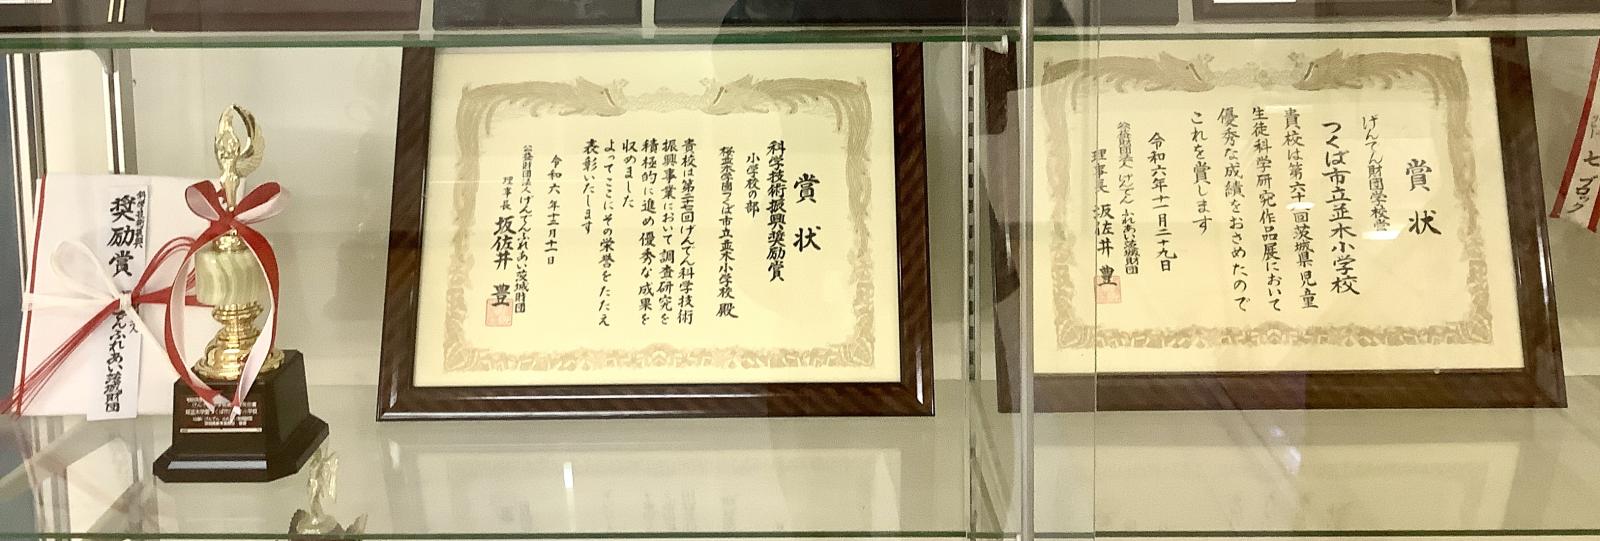 奨励賞
賞状
科学技術振興奨励賞
小学校の部
桜並木学園つくば市立並木小学校 殿
貴校は第二七回げんでん科学技術
振興事業において調査研究を
積極的に進め優秀な成果を
収めました
よってここにその栄誉をたたえ
表彰いたします
令和六年十二月十一日
公益財団法人げんでんふれあい茨城財団
理事長 坂佐井 豊
賞状
げんでん財団学校賞
つくば市立並木小学校
貴校は第六十一回茨城県児童
生徒科学研究作品展において
優秀な成績をおさめたので
これを賞します
令和六年十一月二十九日
公益財団法人げんでんふれあい茨城財団
理事長 坂佐井 豊
七ブロック